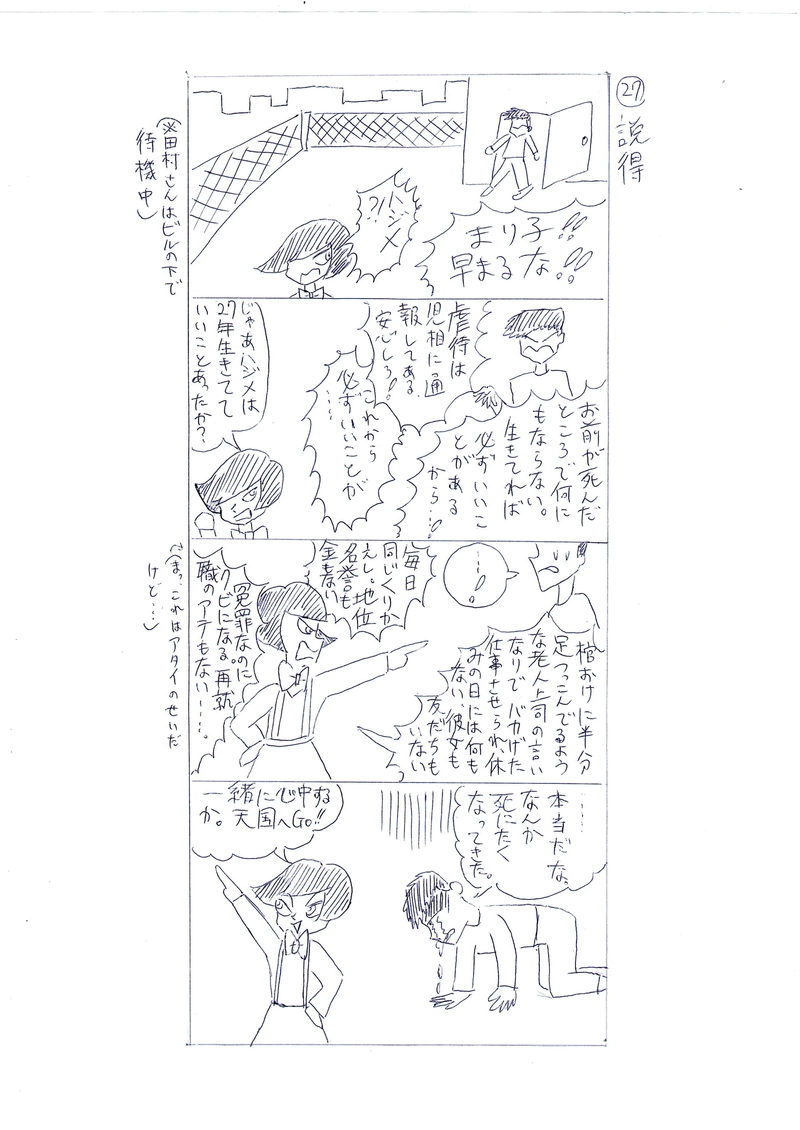 ㉗ 説得
まり子!!
早まるな!!
ハジメ
?!
(※田村さんはビルの下で
待機中)
お前が死んだ
ところで何に
もならない。
生きてれば
必ずいいこ
とがある
から…!
虐待は
児相に通
報してある。
安心しろ!
これから
必ずいいことが
……
じゃあハジメは
27年生きてて
いいことあったか?
…!
棺おけに半分
足つっこんでるよう
な老人上司の言い
なりでバカげた
仕事させられ、休
みの日には何も
ない、彼女も
友だちも
いない
毎日
同じくりか
えし。地位
名誉も
金もない
冤罪なのに
クビになる。再就
職のアテもない……。
(まっ、これはアタイのせいだ
けど…)
……
本当だな。
なんか
死にたく
なってきた。
一緒に心中する
か。天国へGo!!